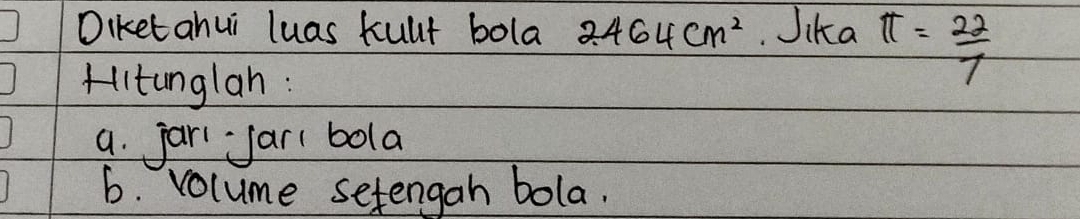 Diketahui luas kulit bola 2464 cm². Jika π = 22/7
Hitunglah :
a. jari-jari bola
b. volume setengah bola.